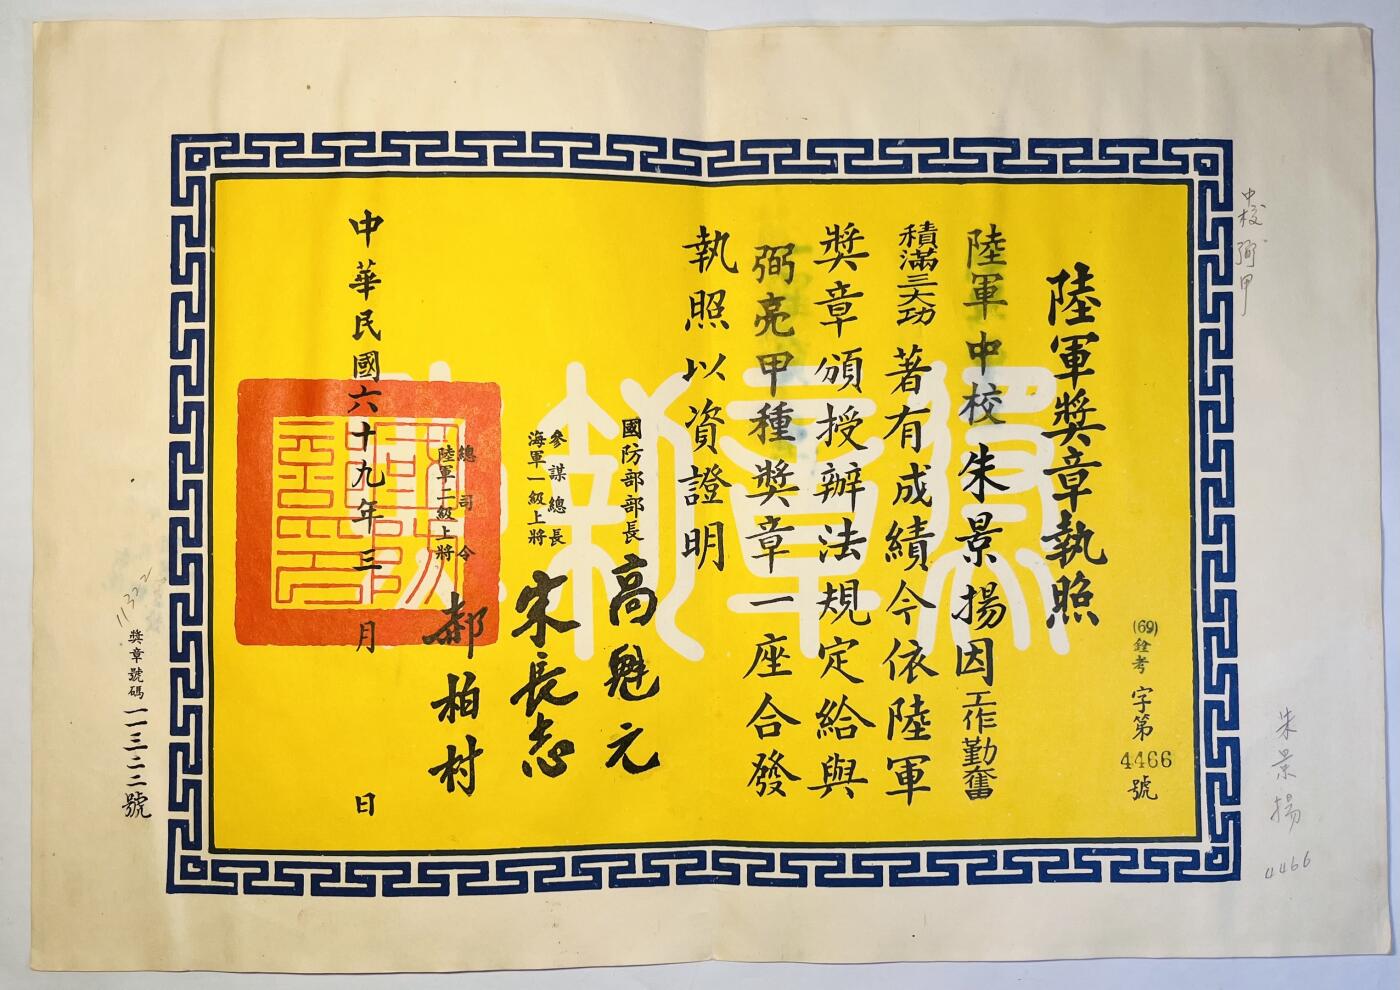 陸軍獎章執照
(69)銓考字第4466號
陸軍中校朱景揚因工作勤奮
積滿三大功著有成績今依陸軍
獎章頒授辦法規定給與
弼亮甲種獎章一座合發
執照以資證明
國防部部長高魁元
參謀總長
海軍一級上將宋長志
總司令
陸軍二級上將郝柏村
中華民國六十九年三月 日
獎章號碼一一三二二號
11322
中校弼甲
朱景揚
4466
獎章執照